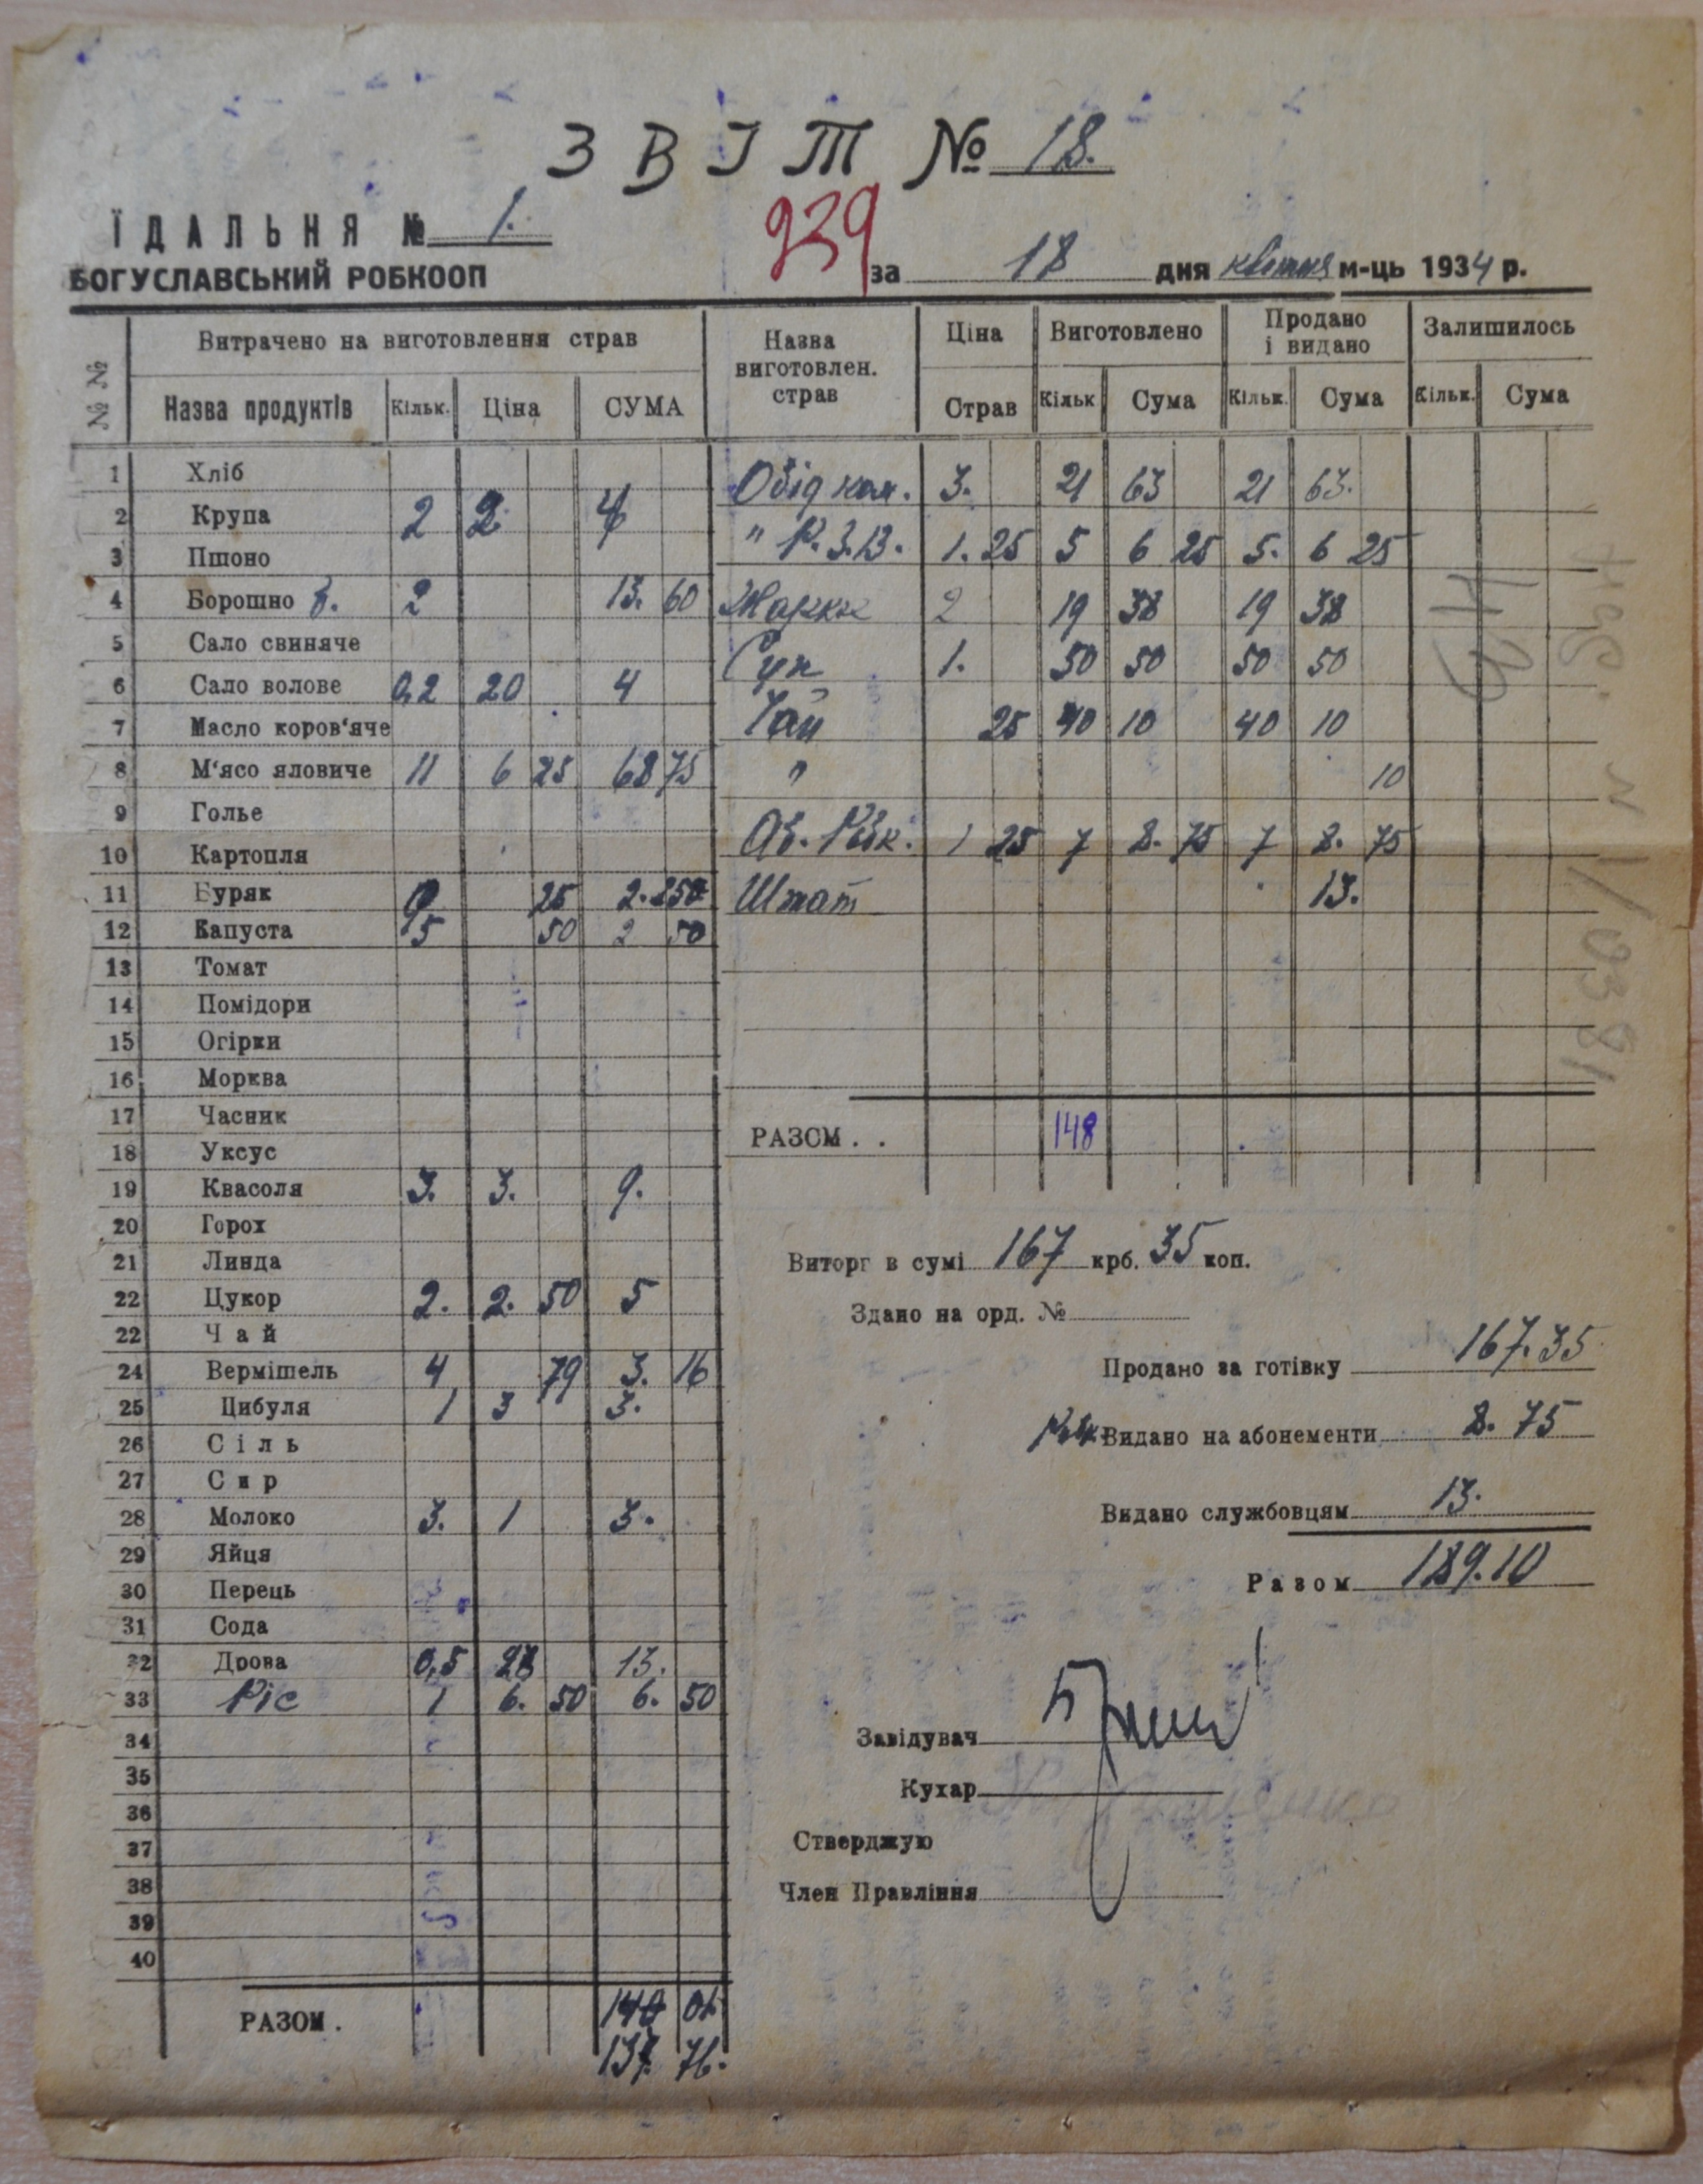 ЗВІТ № 18.
ЇДАЛЬНЯ № 1.
939
БОГУСЛАВСЬКИЙ РОБКООП
за 18 дня квітня м-ць 1934 р.
№ № Витрачено на виготовлення страв
Назва продуктів Кільк. Ціна СУМА
1 Хліб
2 Крупа 2 2 4
3 Пшоно
4 Борошно 2 13. 60
5 Сало свиняче
6 Сало волове 0,2 20 4
7 Масло коров'яче
8 М'ясо яловиче 11 6 25 68 75
9 Голье
10 Картопля
11 Буряк 25 2.
12 Капуста 5 50 2 50
13 Томат
14 Помідори
15 Огірки
16 Морква
17 Часник
18 Уксус
19 Квасоля 3. 3. 9.
20 Горох
21 Линда
22 Цукор 2. 2. 50 5
22 Чай
24 Вермішель 4 79 3. 16
25 Цибуля 1 3 3.
26 Сіль
27 Сир
28 Молоко 3. 1 3.
29 Яйця
30 Перець
31 Сода
32 Дрова 0,5 13.
33 Ріс 1 6. 50 6. 50
34
35
36
37
38
39
40
РАЗОМ. 140 01
137. 76.
Назва виготовлен. страв Ціна Страв Виготовлено Кільк Сума Продано і видано Кільк. Сума Залишилось Кільк. Сума
Обід ком. 3. 21 63 21 63.
" Р.З.В. 1. 25 5 6 25 5. 6 25
2 19 38 19 38
Суп 1. 50 50 50 50
Чай 25 40 10 40 10
" 10
Аб. Рик. 1 25 7 8. 75 7 8. 75
Штат 13.
РАЗОМ . . 148
Виторг в сумі 167 крб. 35 коп.
Здано на орд. №
Продано за готівку 167.35
Видано на абонементи 8. 75
Видано службовцям 13.
Разом 189.10
Завідувач
Кухар
Стверджую
Член Правління